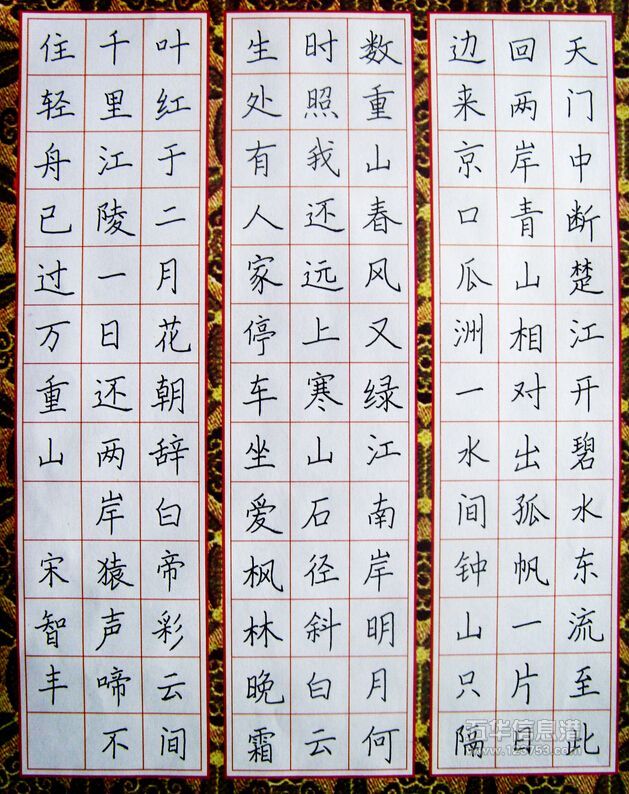 天门中断楚江开碧水东流至此
回两岸青山相对出孤帆一片日
边来京口瓜洲一水间钟山只隔
数重山春风又绿江南岸明月何
时照我还远上寒山石径斜白云
生处有人家停车坐爱枫林晚霜
叶红于二月花朝辞白帝彩云间
千里江陵一日还两岸猿声啼不
住轻舟已过万重山 宋智丰
五华信息港